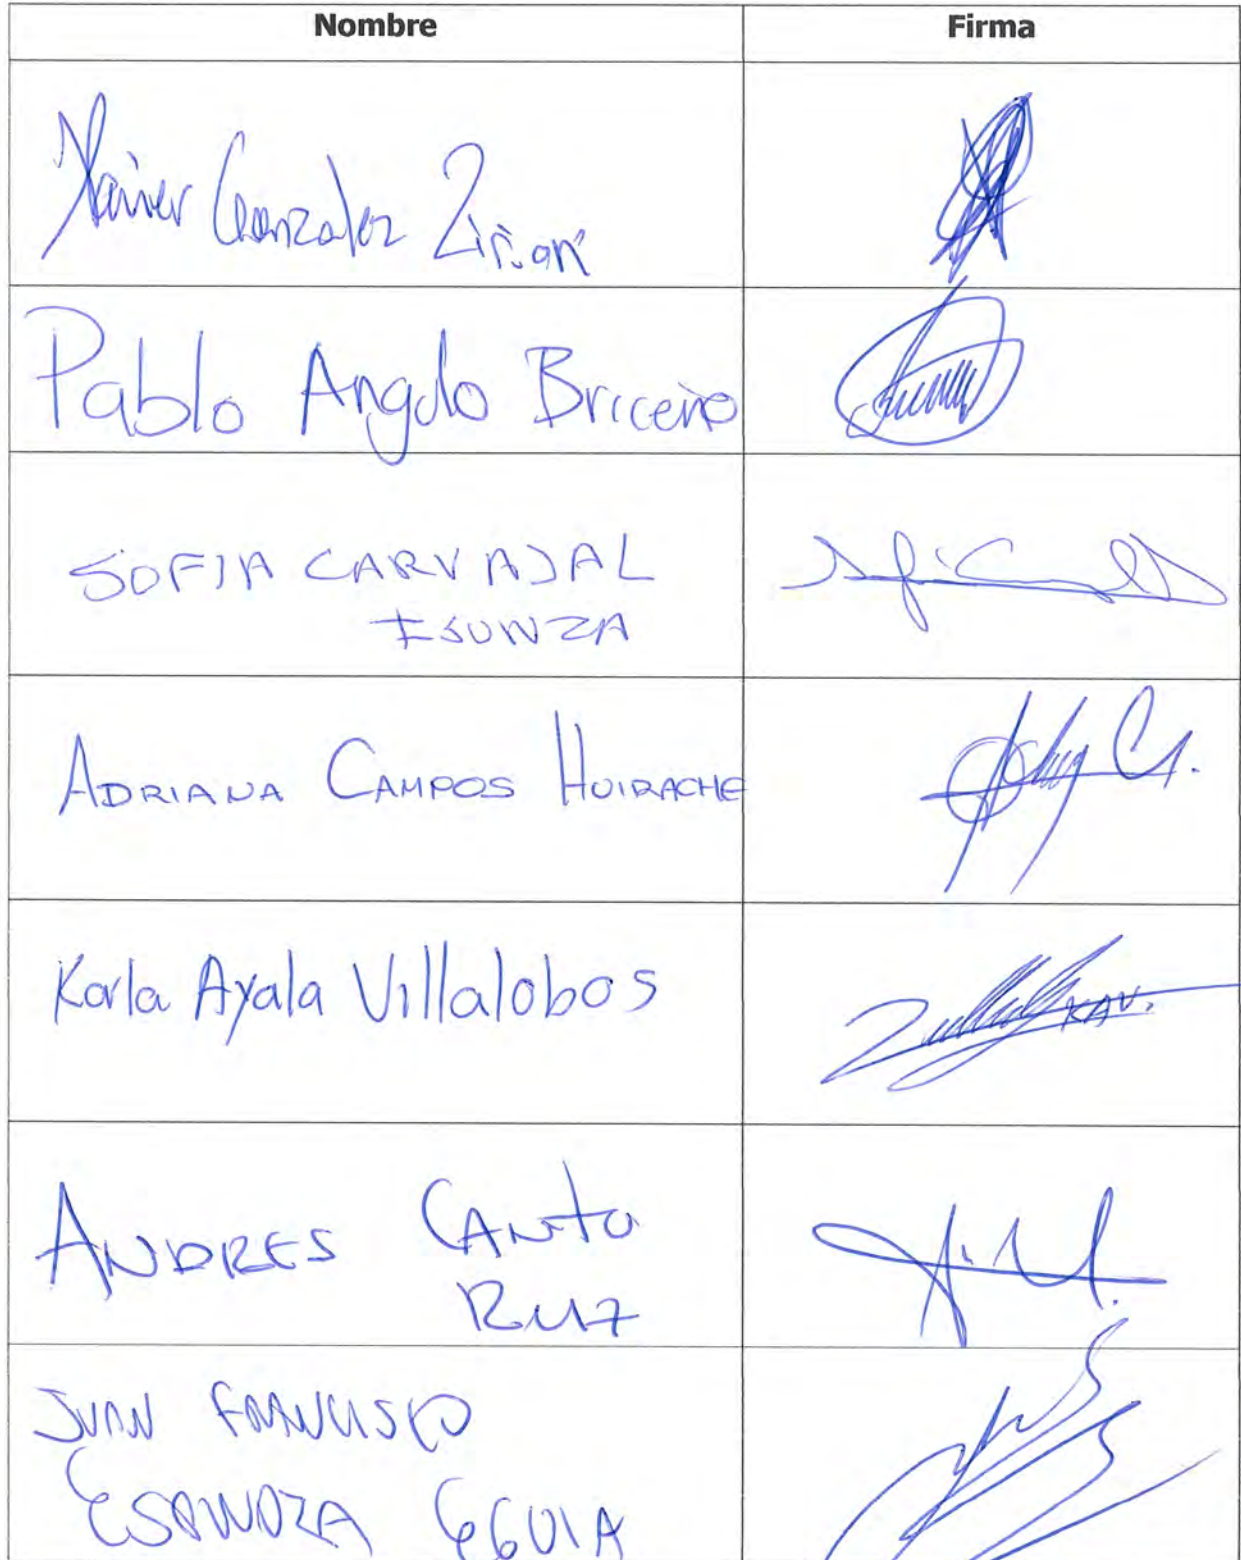 Nombre Firma
Xavier Gonzalez Zirión
Pablo Angulo Briceño
SOFIA CARVAJAL
ISUNZA
ADRIANA CAMPOS HUIRACHE
Karla Ayala Villalobos
KAV.
ANDRES CANTO
RUIZ
JUAN FRANCISCO
ESPINOZA EGUIA